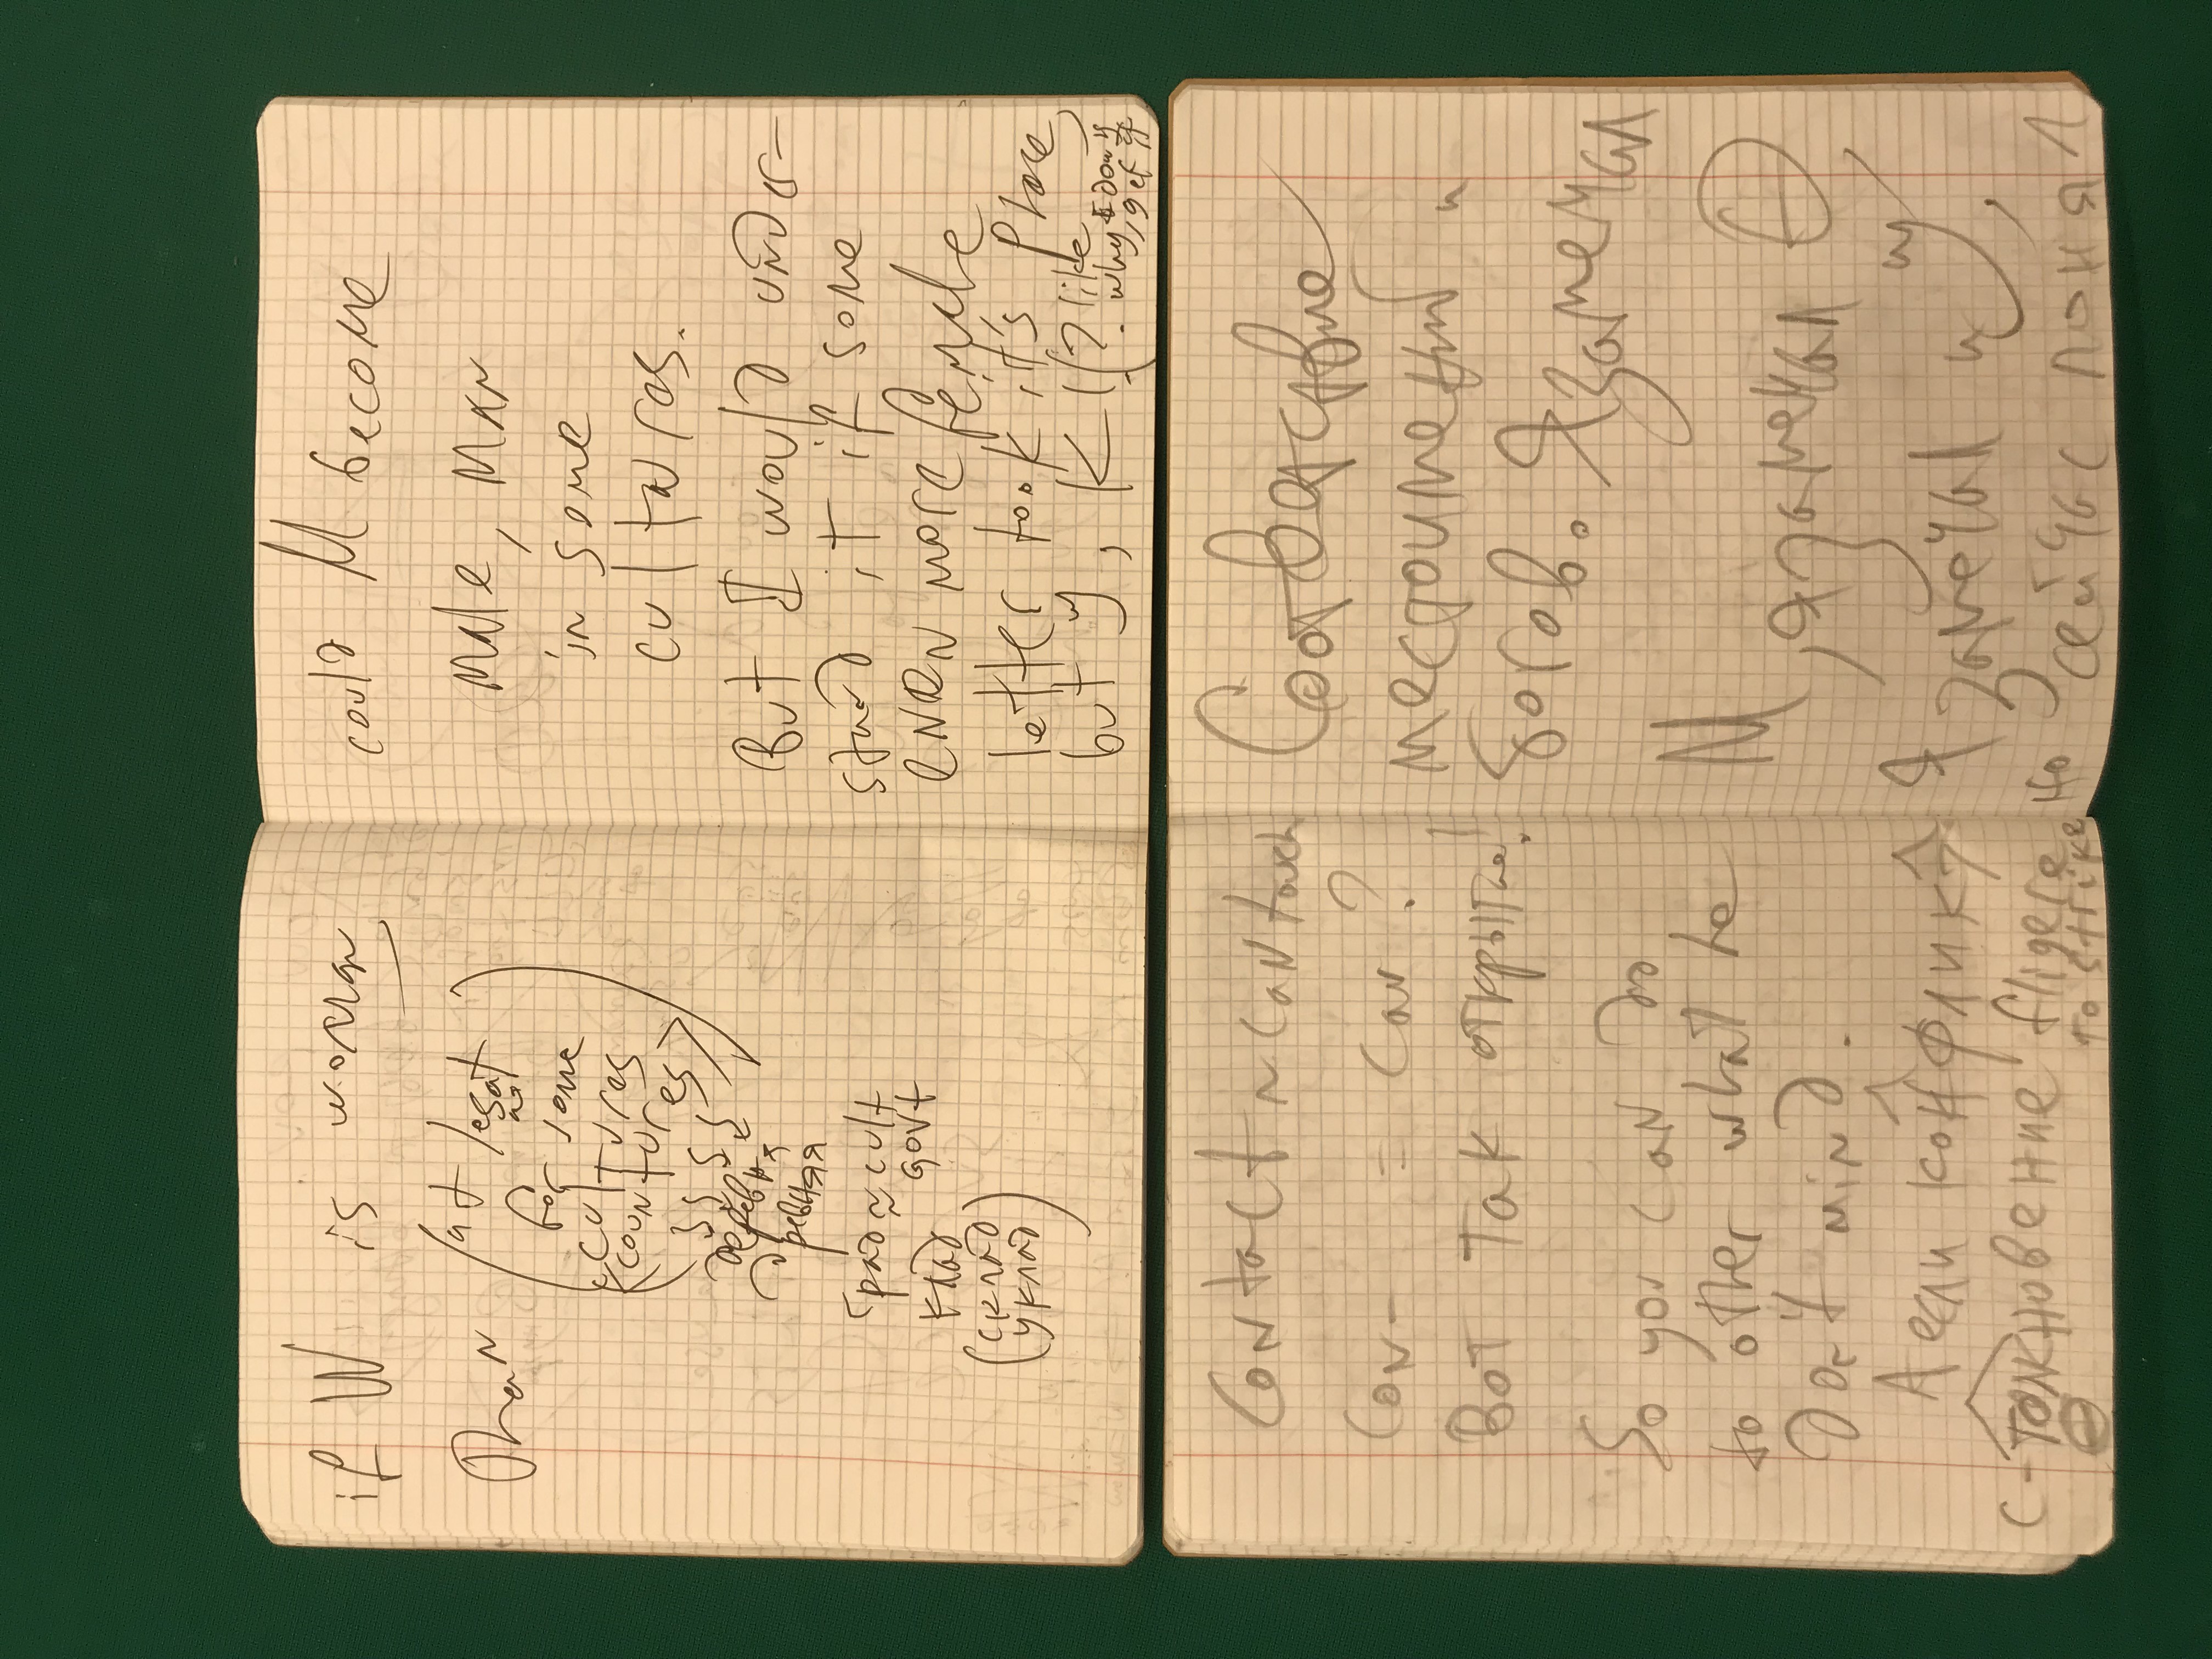 if W is woman,
Than (at lesat
for some
cultures
<countures>
деревня
древняя
град ~ cult
govt
клад
(склад
уклад)
could M become
male, man
in some
cultures.
But I would under-
stand it if some
even more female
letter took it's place,
but y, K!(? like
why I don't
get it
Contact ~ can touch
Con- = can?
Вот так открытие!
So you can do
to other what he
Don't mind.
А если конфликт
с-толкновение fligere
to strike
Соответствие
местоимений и
богов. Я замечал
М, я замечал Ө
Я замечал и y,
но сейчас понял